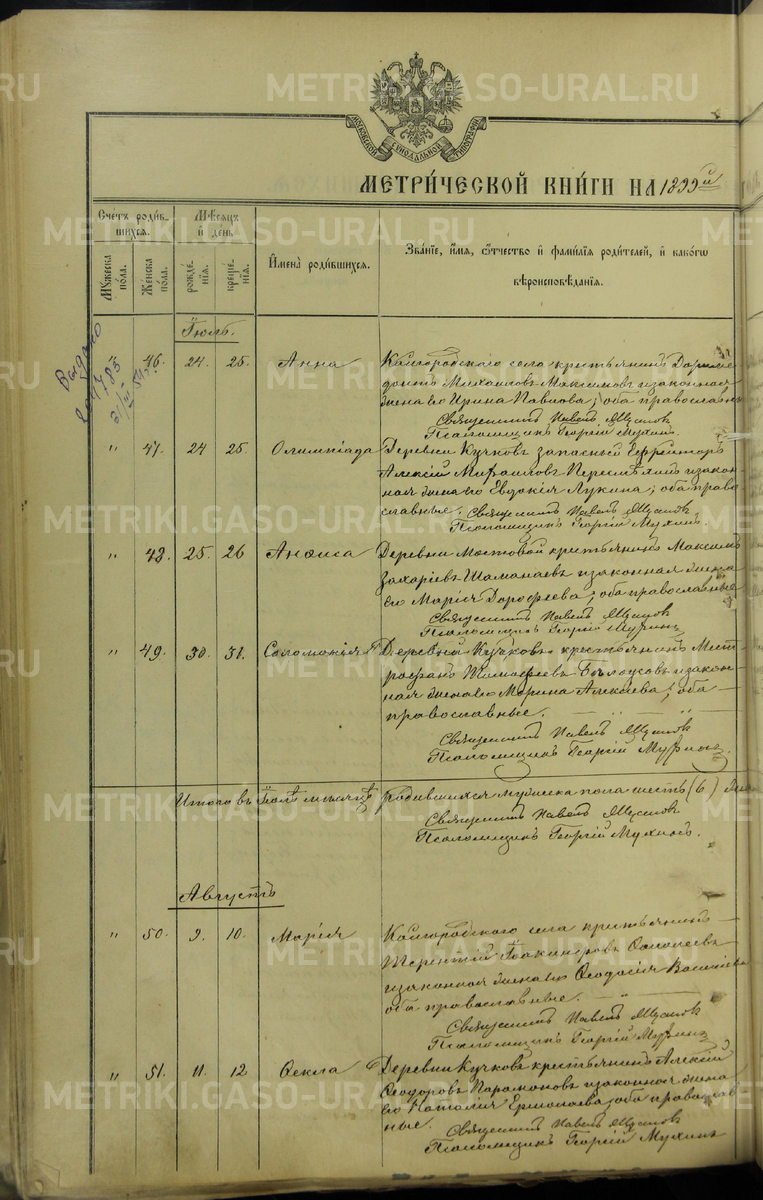 METRIK.GASO-URAL.RU
МОСКОВСКОЙ СѴНОДАЛЬНОЙ ТИПОГРАФІИ
МЕТРИ́ЧЕСКОЙ КНИ́ГИ НА 1899й
Сче́тъ роди́в-
шихся.
Мѣ́сяцъ
и҆ де́нь
И҆мена̀ роди́вшихся.
Зва́нїе, и҆́мѧ, ѻ҆́тчество и҆ фами́лїѧ роди́телей, и҆ како́гѡ
вѣроисповѣ́данїѧ.
Мꙋ́жеска по́ла.
Же́нска по́ла.
рожде́нїѧ.
креще́нїѧ.
Іюль.
Выдано
" 46. 24. 25. Анна
Кайгородскаго села крестьянинъ
Михаиловъ Максимовъ и законная
жена его Ирина Павлова; оба православн
Священникъ Павелъ
Псаломщикъ Георгій Мухинъ.
" 47. 24 25 Олимпіада
Деревни Кучковъ запасной ефрейторъ
Алексій и закон-
ная жена его Евдокія Лукина; оба право-
славные. Священникъ Павелъ
Псаломщикъ Георгій Мухинъ.
" 48. 25. 26 Анѳиса
Деревни Мостовой крестьянинъ Максимъ
Захаріевъ Шаманаевъ и законная жена
его Марія Дороѳеева; оба православные
Священникъ Павелъ
Псаломщикъ Георгій Мухинъ
" 49. 30. 31. Соломонія
Деревни Кучковъ крестьянинъ Мит-
рофанъ Тимофеевъ Бѣлоусовъ и закон-
ная жена его Марина Алексѣева; оба
православные.
Священникъ Павелъ
Псаломщикъ Георгій Мухинъ.
Итого въ Іюлѣ мѣсяцѣ родившихся мужеска пола шесть (6)
Священникъ Павелъ
Псаломщикъ Георгій Мухинъ.
Августъ
" 50. 9. 10. Марія
Кайгородскаго села крестьянинъ
Терентій Іоакимовъ
и законная жена его Ѳеодосія
оба православные.
Священникъ Павелъ
Псаломщикъ Георгій Мухинъ
" 51. 11. 12 Ѳекла
Деревни Кучковъ крестьянинъ Алексій
Ѳеодоровъ Парамоновъ и законная жена
его Наталія Ермолаева; оба православ-
ные. Священникъ Павелъ
Псаломщикъ Георгій Мухинъ